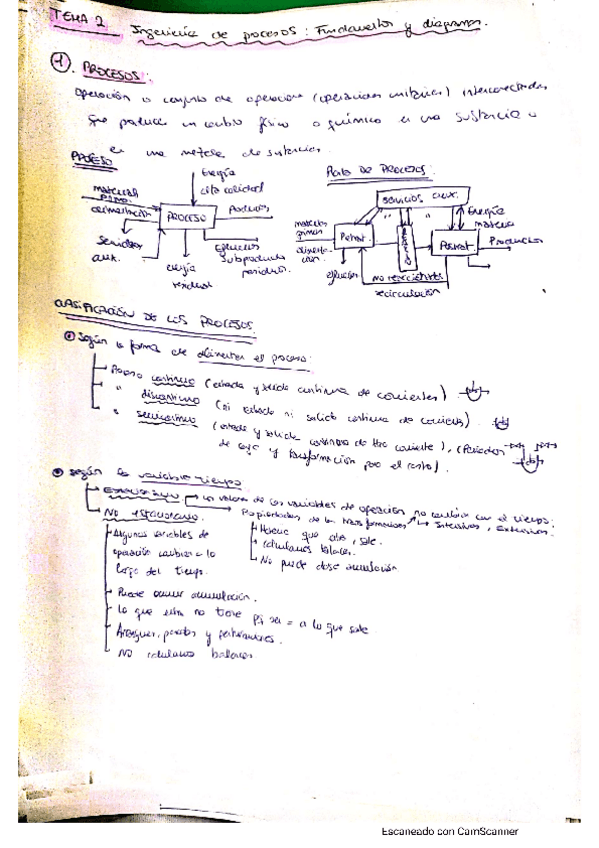 TEMA 2 Ingeniería de procesos: Fundamentos y diagramas.
1. PROCESOS:
Operación o conjunto de operaciones (operaciones unitarias) interconectadas
que produce un cambio físico o químico en una sustancia o
en una mezcla de sustancias.
PROCESO
Energía
alta calidad
materias
primas
alimentación
PROCESO
Productos
Servicios
aux.
energía
residual
efluentes
subproductos
residuos.
Planta DE PROCESOS:
SERVICIOS AUX.
materias
primas
Energía
materia
Productos
efluentes
no reaccionantes
recirculación
CLASIFICACIÓN DE LOS PROCESOS
① Según la forma de alimentar el proceso:
Proceso continuo (entrada y salida continua de corrientes)
" discontinuo (ni entrada ni salida continua de corriente).
" semicontinuo (entrada y salida continua de una corriente), (Periodos
de carga y transformación para el resto).
② Según la variable tiempo
Estacionario. Los valores de las variables de operación no cambian con el tiempo.
Propiedades de las transformaciones Intensivas, Extensivas.
Materia que entra, sale.
Calculamos balances.
No puede darse acumulación
No estacionario.
Algunas variables de
operación cambian a lo
largo del tiempo.
Puede ocurrir acumulación.
Lo que entra no tiene pq ser = a lo que sale
Arranques, paradas y perturbaciones.
No calculamos balances
Escaneado con CamScanner